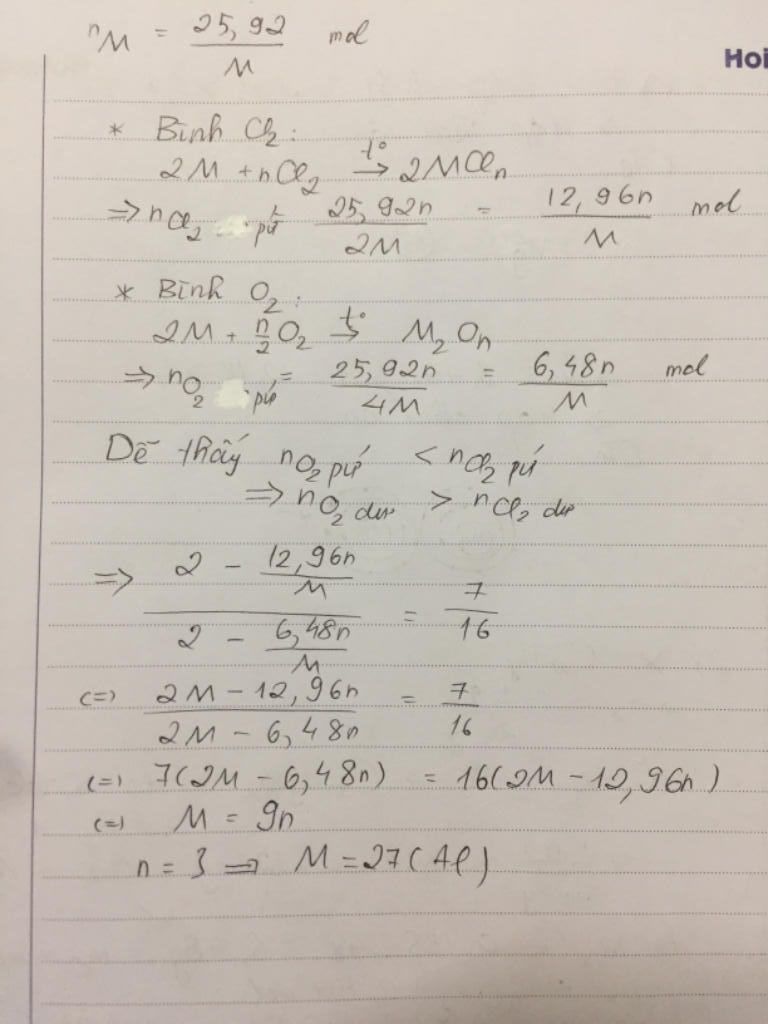 nM = 25,92/M mol
Hoi
* Bình Cl2:
2M + nCl2 t°→ 2MCln
=> nCl2 pứ = 25,92n/2M = 12,96n/M mol
* Bình O2:
2M + n/2 O2 t°→ M2On
=> nO2 pứ = 25,92n/4M = 6,48n/M mol
Dễ thấy nO2 pứ < nCl2 pứ
=> nO2 dư > nCl2 dư
=> (2 - 12,96n/M)/(2 - 6,48n/M) = 7/16
(=) (2M - 12,96n)/(2M - 6,48n) = 7/16
(=) 7(2M - 6,48n) = 16(2M - 12,96n)
(=) M = 9n
n = 3 => M = 27 (Al)